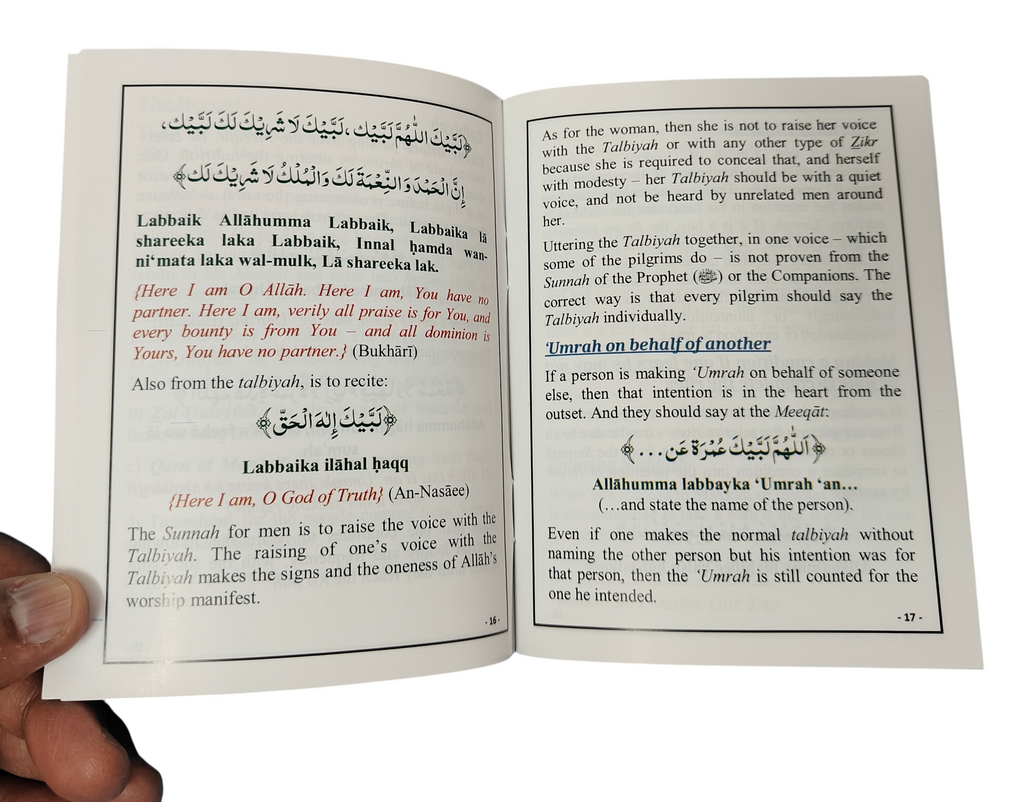 ﴿لَبَّيْكَ اللَّهُمَّ لَبَّيْكَ، لَبَّيْكَ لَا شَرِيْكَ لَكَ لَبَّيْكَ،
إِنَّ الْحَمْدَ وَالنِّعْمَةَ لَكَ وَالْمُلْكَ لَا شَرِيْكَ لَكَ﴾
Labbaik Allāhumma Labbaik, Labbaika lā
shareeka laka Labbaik, Innal ḥamda wan-
ni‘mata laka wal-mulk, Lā shareeka lak.
{Here I am O Allāh. Here I am, You have no
partner. Here I am, verily all praise is for You, and
every bounty is from You – and all dominion is
Yours, You have no partner.} (Bukhārī)
Also from the talbiyah, is to recite:
﴿لَبَّيْكَ إِلٰهَ الْحَقِّ﴾
Labbaika ilāhal ḥaqq
{Here I am, O God of Truth} (An-Nasāee)
The Sunnah for men is to raise the voice with the
Talbiyah. The raising of one’s voice with the
Talbiyah makes the signs and the oneness of Allāh’s
worship manifest.
- 16 -
As for the woman, then she is not to raise her voice
with the Talbiyah or with any other type of Zikr
because she is required to conceal that, and herself
with modesty – her Talbiyah should be with a quiet
voice, and not be heard by unrelated men around
her.
Uttering the Talbiyah together, in one voice – which
some of the pilgrims do – is not proven from the
Sunnah of the Prophet (ﷺ) or the Companions. The
correct way is that every pilgrim should say the
Talbiyah individually.
‘Umrah on behalf of another
If a person is making ‘Umrah on behalf of someone
else, then that intention is in the heart from the
outset. And they should say at the Meeqāt:
﴿اَللَّهُمَّ لَبَّيْكَ عُمْرَةً عَن...﴾
Allāhumma labbayka ‘Umrah ‘an...
(…and state the name of the person).
Even if one makes the normal talbiyah without
naming the other person but his intention was for
that person, then the ‘Umrah is still counted for the
one he intended.
- 17 -